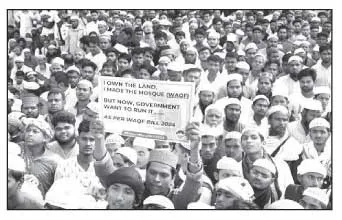 I OWN THE LAND,
I MADE THE MOSQUE (WAQF)
BUT NOW, GOVERNMENT
WANT TO RUN IT.....
AS PER WAQF BILL 2024